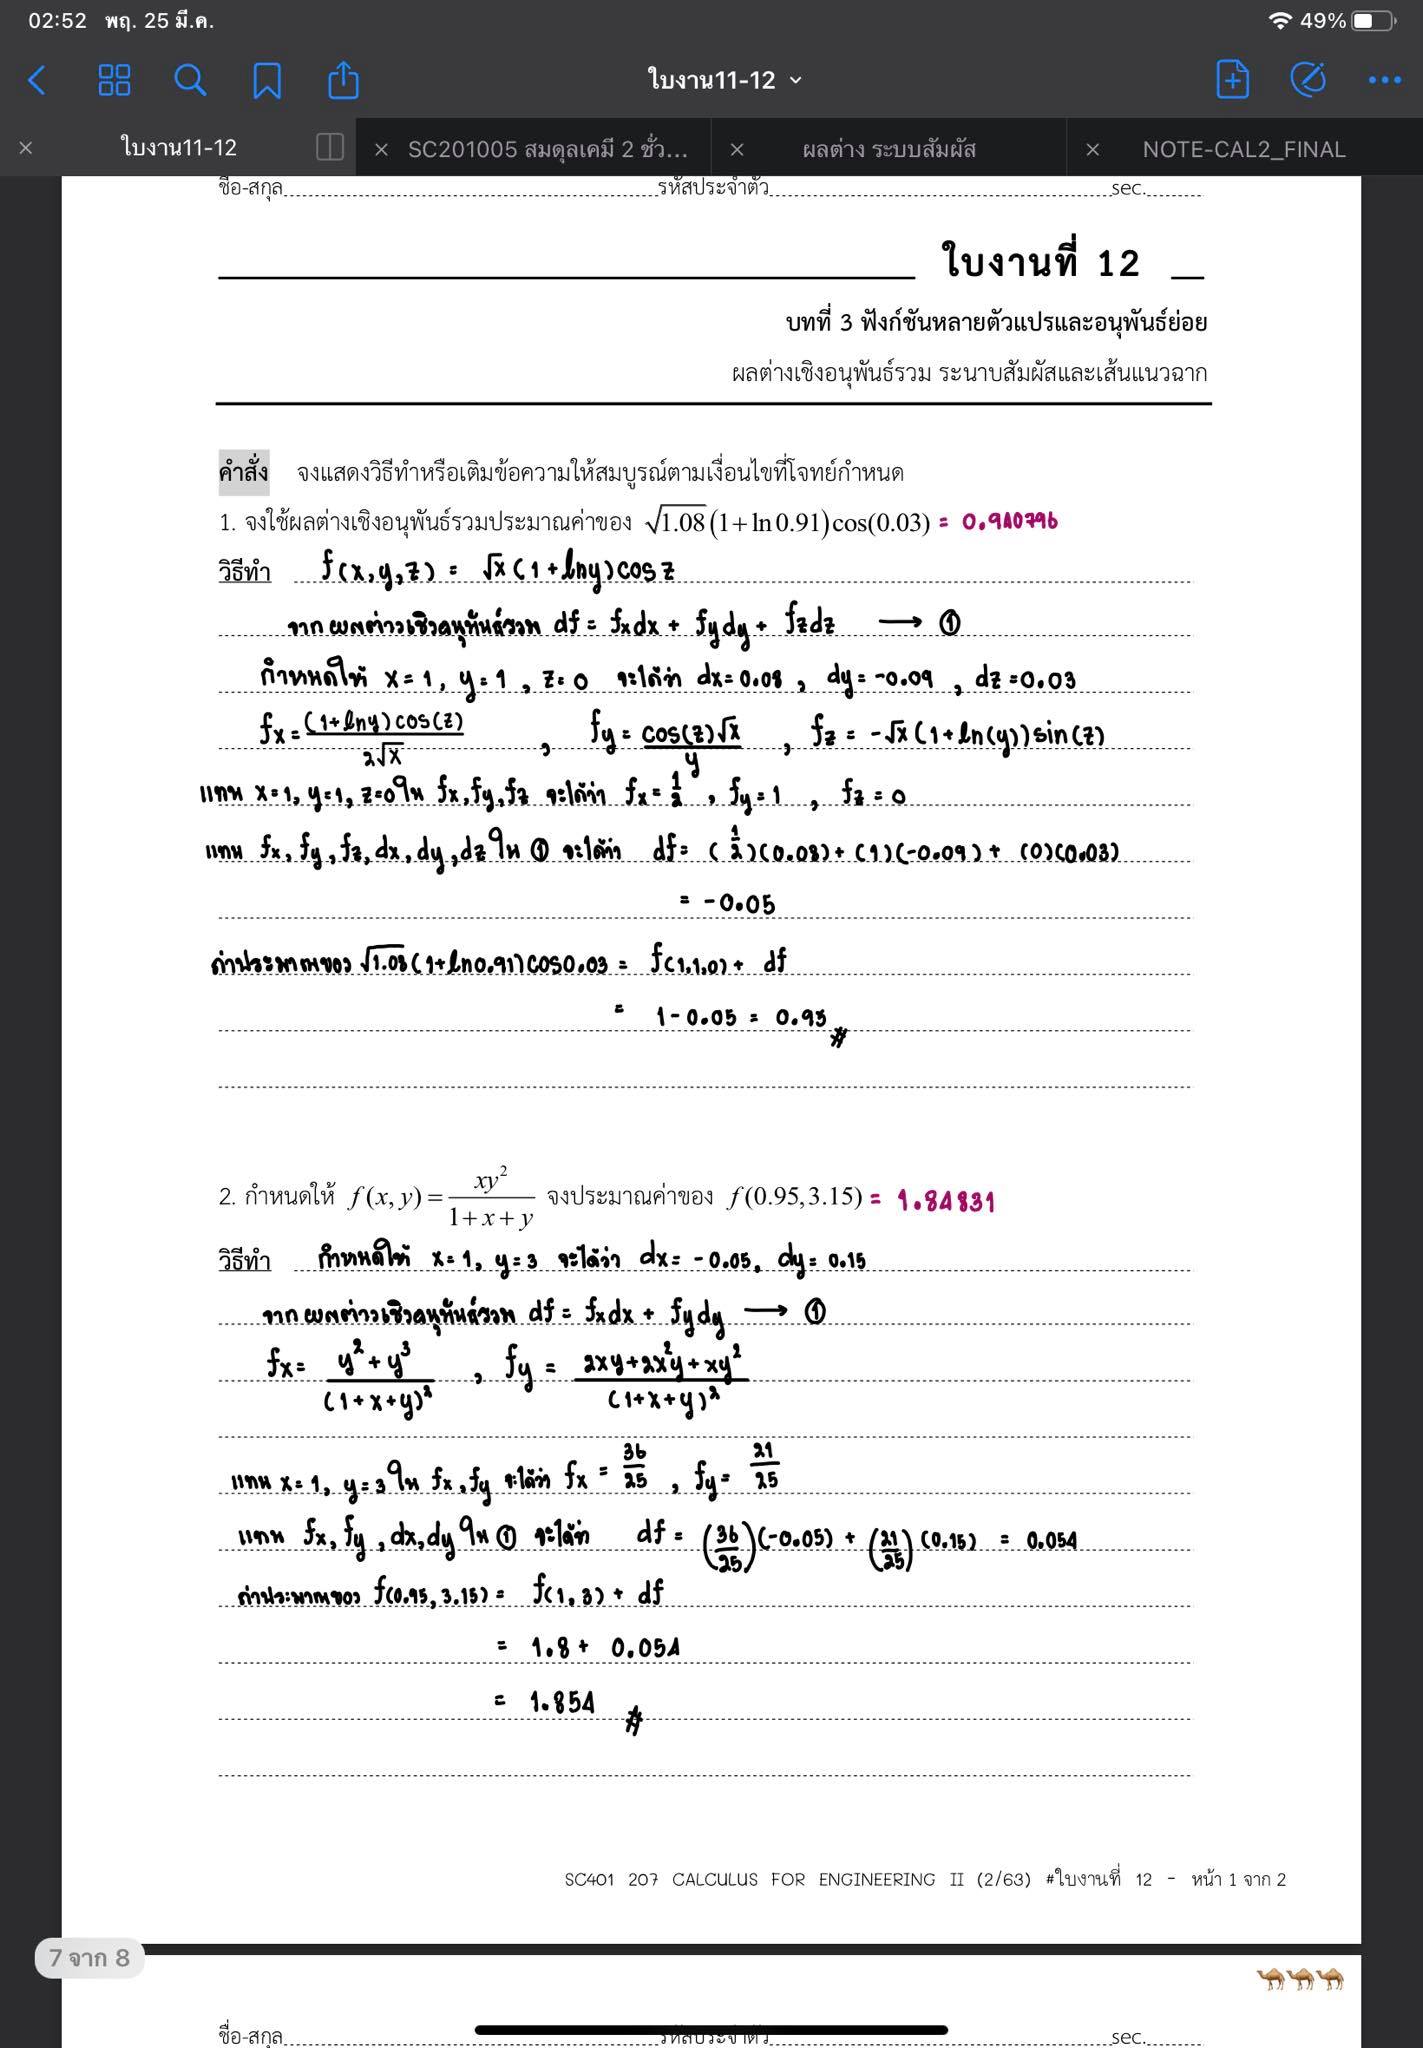 02:52 พฤ. 25 มี.ค.
49%
ใบงาน11-12
ใบงาน11-12
SC201005 สมดุลเคมี 2 ชั่ว...
ผลต่าง ระบบสัมผัส
NOTE-CAL2_FINAL
ชื่อ-สกุล รหัสประจำตัว sec.
ใบงานที่ 12
บทที่ 3 ฟังก์ชันหลายตัวแปรและอนุพันธ์ย่อย
ผลต่างเชิงอนุพันธ์รวม ระนาบสัมผัสและเส้นแนวฉาก
คำสั่ง จงแสดงวิธีทำหรือเติมข้อความให้สมบูรณ์ตามเงื่อนไขที่โจทย์กำหนด
1. จงใช้ผลต่างเชิงอนุพันธ์รวมประมาณค่าของ √1.08(1+ln0.91)cos(0.03) = 0.940796
วิธีทำ f(x,y,z) = √x(1+lny)cosz
จากผลต่างเชิงอนุพันธ์รวม df = fxdx + fydy + fzdz → ①
กำหนดให้ x=1, y=1, z=0 จะได้ว่า dx=0.08, dy=-0.09, dz=0.03
fx = (1+lny)cos(z)/2√x , fy = cos(z)√x/y , fz = -√x(1+ln(y))sin(z)
แทน x=1, y=1, z=0 ใน fx, fy, fz จะได้ว่า fx = 1/2 , fy = 1 , fz = 0
แทน fx, fy, fz, dx, dy, dz ใน ① จะได้ว่า df = (1/2)(0.08) + (1)(-0.09) + (0)(0.03)
= -0.05
ค่าประมาณของ √1.08(1+ln0.91)cos0.03 = f(1,1,0) + df
= 1-0.05 = 0.95 #
2. กำหนดให้ f(x,y) = xy²/1+x+y จงประมาณค่าของ f(0.95,3.15) = 1.84831
วิธีทำ กำหนดให้ x=1, y=3 จะได้ว่า dx = -0.05, dy = 0.15
จากผลต่างเชิงอนุพันธ์รวม df = fxdx + fydy → ①
fx = y²+y³/(1+x+y)² , fy = 2xy+2x²y+xy²/(1+x+y)²
แทน x=1, y=3 ใน fx, fy จะได้ว่า fx = 36/25 , fy = 21/25
แทน fx, fy, dx, dy ใน ① จะได้ว่า df = (36/25)(-0.05) + (21/25)(0.15) = 0.054
ค่าประมาณของ f(0.95, 3.15) = f(1,3) + df
= 1.8 + 0.054
= 1.854 #
SC401 207 CALCULUS FOR ENGINEERING II (2/63) #ใบงานที่ 12 - หน้า 1 จาก 2
7 จาก 8
ชื่อ-สกุล รหัสประจำตัว sec.